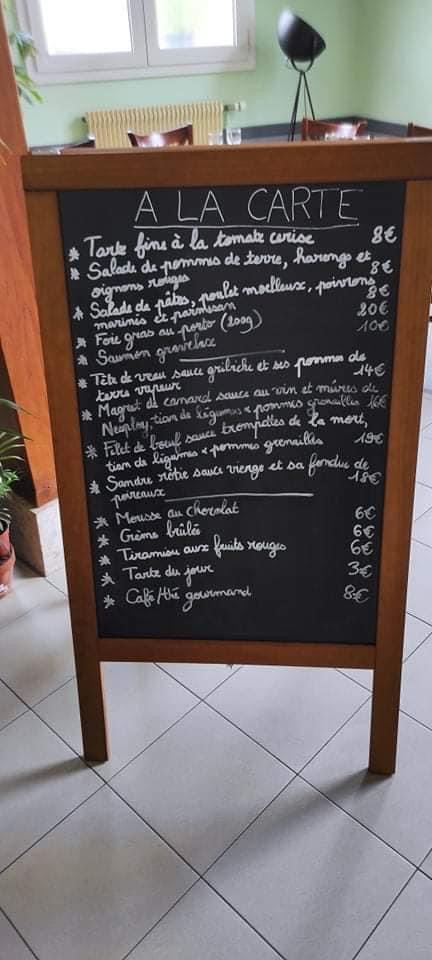 A LA CARTE
* Tarte fine à la tomate cerise 8€
* Salade de pommes de terre, harengs et
oignons rouges 8€
* Salade de pâtes, poulet moelleux, poivrons
marinés et parmesan 8€
* Foie gras au porto (200g) 20€
* Saumon gravelax 10€
* Tête de veau sauce gribiche et ses pommes de
terre vapeur 14€
* Magret de canard sauce au vin et mûres de
tian de légumes + pommes grenailles 16€
* Filet de bœuf sauce trompettes de la mort,
tian de légumes + pommes grenailles 19€
* Sandre rôtie sauce vierge et sa fondue de
poireaux 18€
* Mousse au chocolat 6€
* Crème brûlé 6€
* Tiramisu aux fruits rouges 6€
* Tarte du jour 3€
* Café/thé gourmand 8€